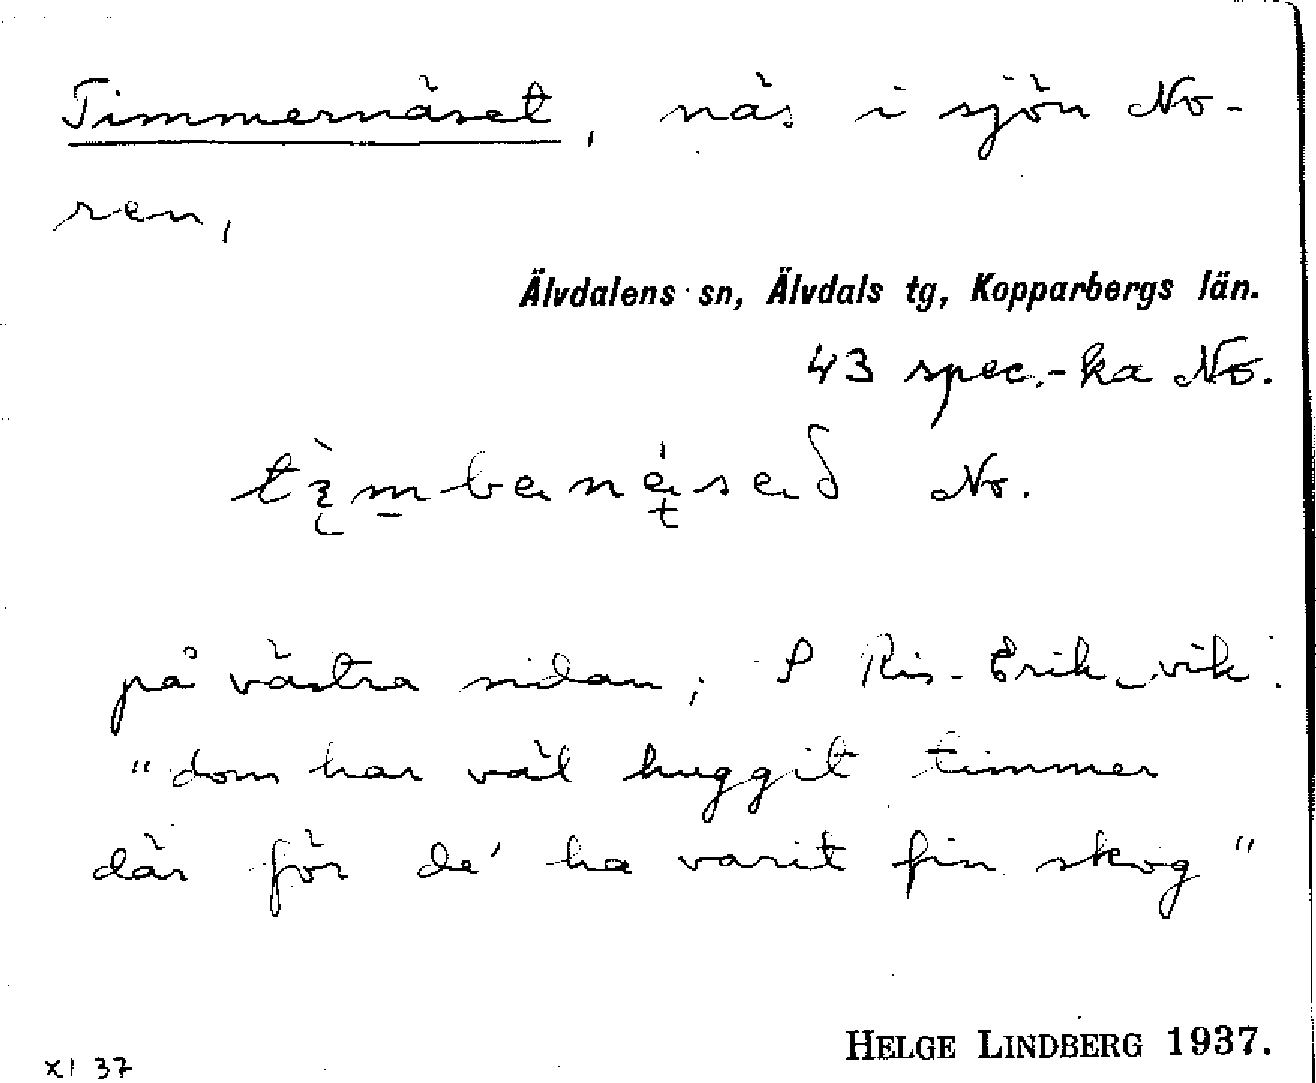 Timmernäset, näs i sjön No-
ren,
Älvdalens sn, Älvdals tg, Kopparbergs län.
43 spec.-ka No.
No.
på västra sidan; S Ris-Erik-vik.
"dom har väl huggit timmer
där för de' ha varit fin skog"
HELGE LINDBERG 1937.
XI 37